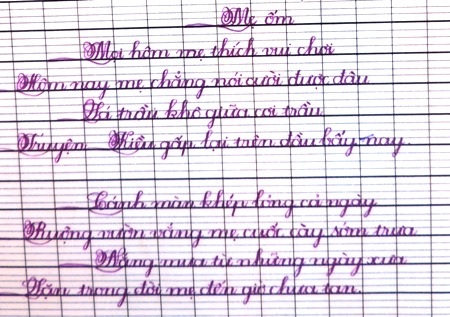 Mẹ ốm
Mọi hôm mẹ thích vui chơi
Hôm nay mẹ chẳng nói cười được đâu
Lá trầu khô giữa cơi trầu
Truyện Kiều gấp lại trên đầu bấy nay.
Cánh màn khép lỏng cả ngày
Ruộng vườn vắng mẹ cuốc cày sớm trưa
Nắng mưa từ những ngày xưa
Lặn trong đời mẹ đến giờ chưa tan.